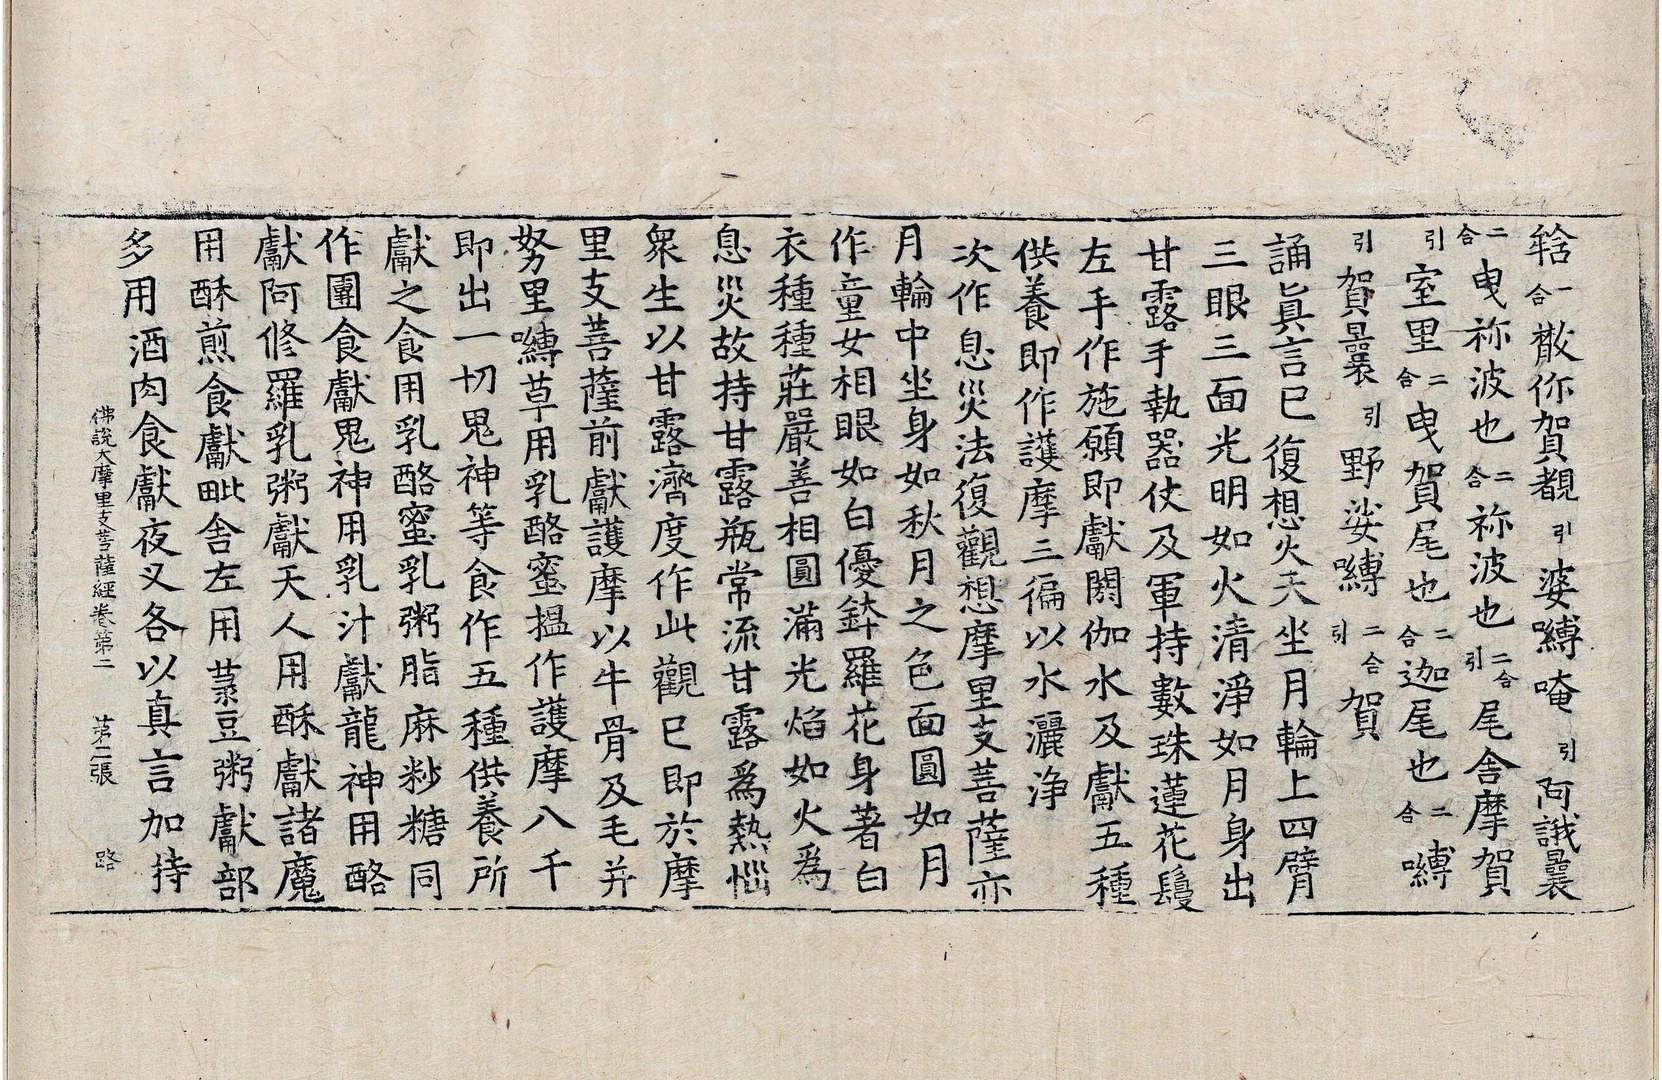 輅二合撒你賀覩引婆嚩唵引阿誐曩
二合曳祢波也二合祢波也二合引尾舍摩賀
引室里二合曳賀尾也二合迦尾也二合嚩
引賀曩引野娑嚩二合引賀
誦眞言已復想火天坐月輪上四臂
三眼三面光明如火清淨如月身出
甘露手執器仗及軍持數珠蓮花鬘
左手作施願即獻閼伽水及獻五種
供養即作護摩三徧以水灑淨
次作息災法復觀想摩里支菩薩亦
月輪中坐身如秋月之色面圓如月
作童女相眼如白優鉢羅花身著白
衣種種莊嚴善相圓滿光焰如火爲
息災故持甘露瓶常流甘露爲熱惱
衆生以甘露濟度作此觀已即於摩
里支菩薩前獻護摩以牛骨及毛并
努里嚩草用乳酪蜜搵作護摩八千
即出一切鬼神等食作五種供養所
獻之食用乳酪蜜乳粥脂麻粆糖同
作團食獻鬼神用乳汁獻龍神用酪
獻阿修羅乳粥獻天人用酥獻諸魔
用酥煎食獻毗舍左用菉豆粥獻部
多用酒肉食獻夜叉各以真言加持
佛說大摩里支菩薩經卷第二 第二張 路